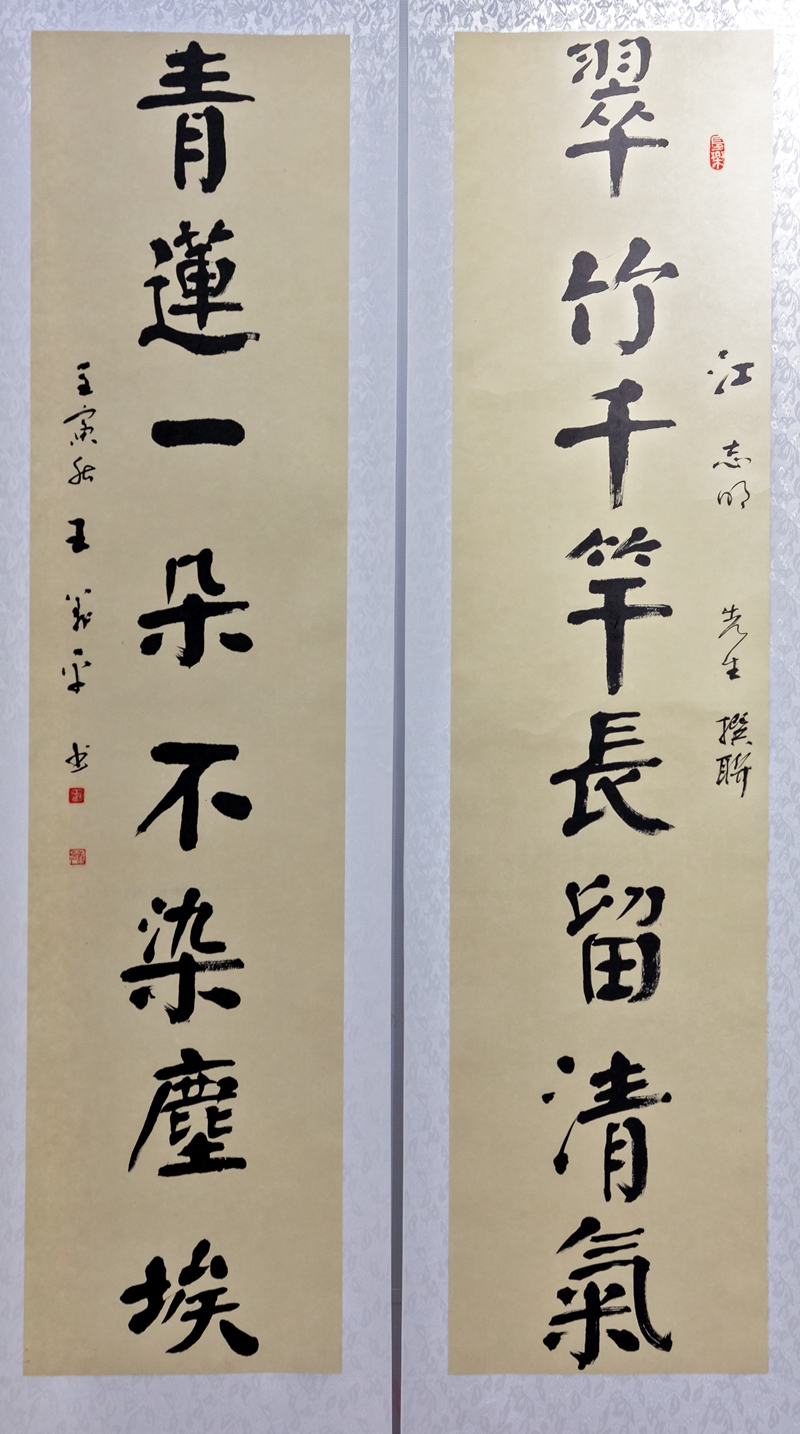 翠竹千竿長留清氣
江志明先生撰聯
青蓮一朵不染塵埃
壬寅秋王義平书